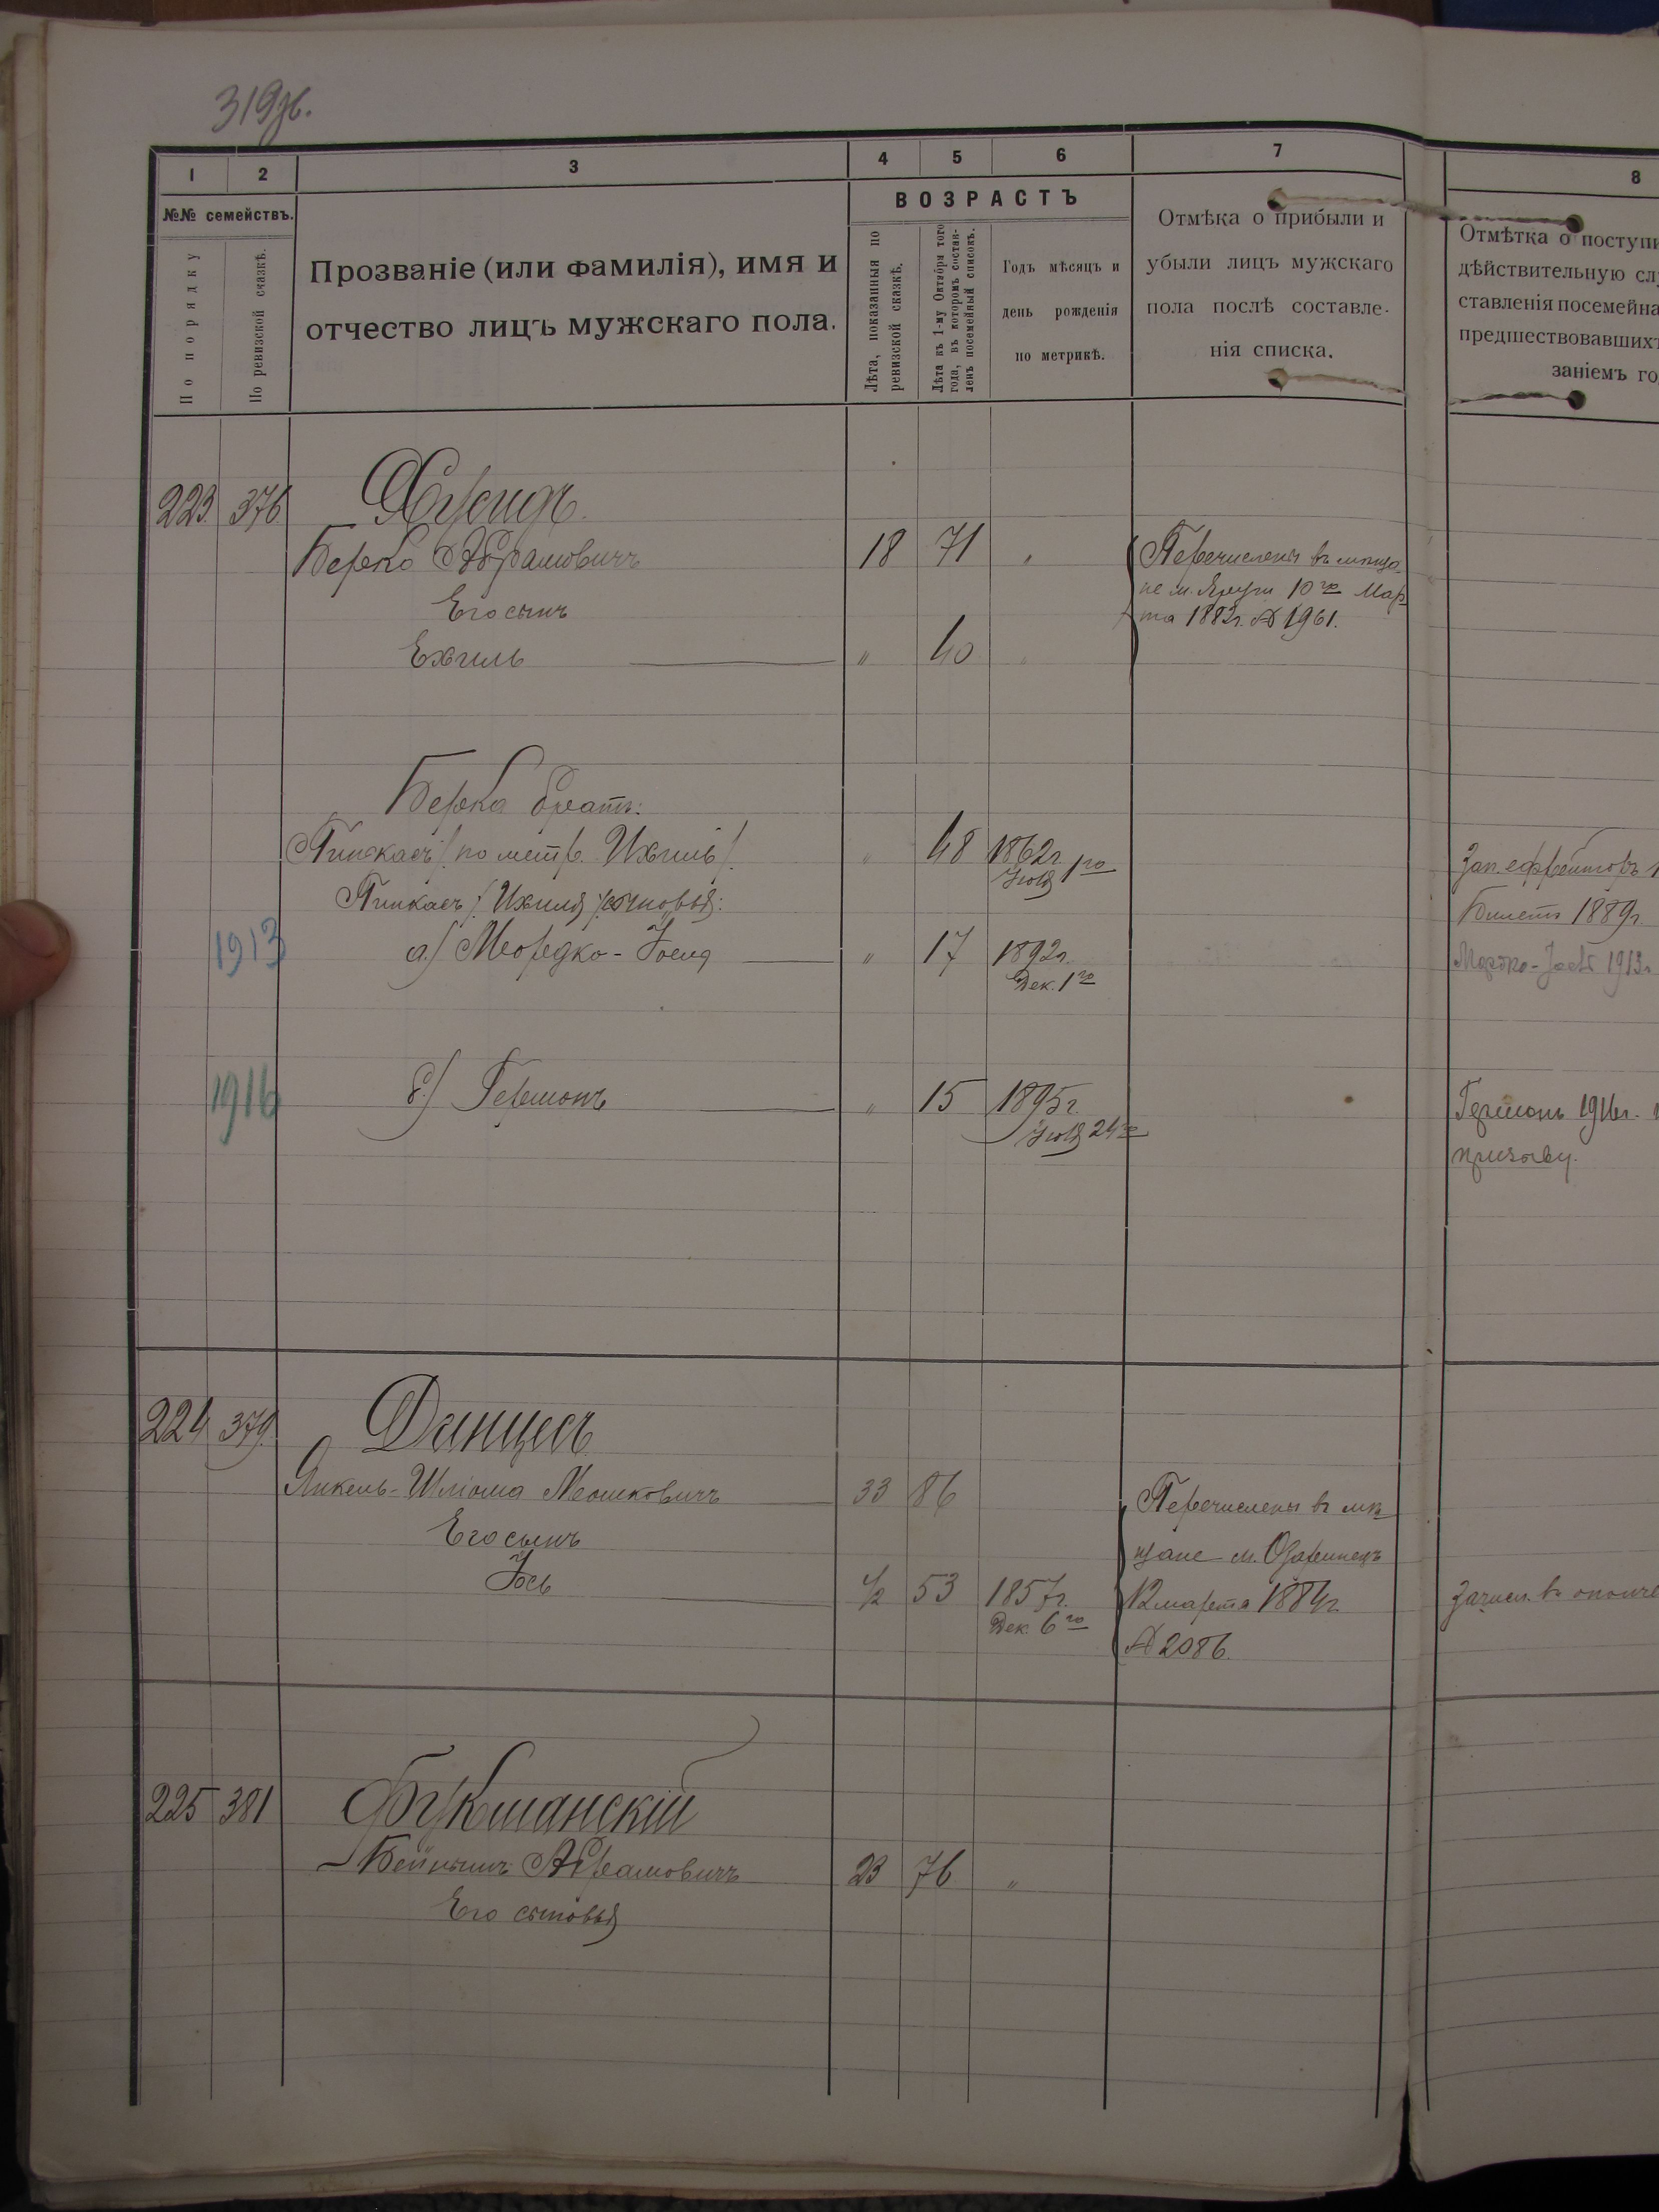 319 зв.
1 2 3 4 5 6 7 8
№№ семействъ.
По порядку
По ревизской сказкѣ.
Прозваніе (или фамилія), имя и
отчество лицъ мужскаго пола.
ВОЗРАСТЪ
Лѣта, показанныя по
ревизской сказкѣ.
Лѣта къ 1-му Октября того
года, въ которомъ состав-
ленъ посемейный списокъ.
Годъ мѣсяцъ и
день рожденія
по метрикѣ.
Отмѣка о прибыли и
убыли лицъ мужскаго
пола послѣ составле-
нія списка.
Отмѣтка о поступи
дѣйствительную сл
ставленія посемейна
предшествовавшихъ
заніемъ го
223. 376
Берко Абрамовичъ 18 71 "
Его сынъ
Ехиль " 40 "
Перечислены въ мѣща-
не м. Яруги 10го Мар-
та 1882г. № 1961.
Берка братъ:
Пинкасъ / по метр. Ихиль /. " 48 1862г.
Іюля 1го
Зап. ефрейторъ
Пинкасъ /: Ихиля :/ сыновья:
Билетъ 1889г.
1913 а) Мордко-Іосиф " 17 1892г.
Дек. 1го
Мордко-Іос 1913г
1916 б) Гершонъ " 15 1895г.
Іюля 24го
Гершонъ 1916г.
призыву.
224 379. Данцесъ
Янкель-Шлёма Мошковичъ 33 86
Его сынъ
Іось 1/2 53 1857г.
Дек. 6го
Перечислены въ мѣ-
щане м. Озаринецъ
12 марта 1884г.
№ 2086.
Зачисл. въ ополче
225 381 Букшанскій
Бейнышъ Абрамовичъ 23 76 "
Его сыновья